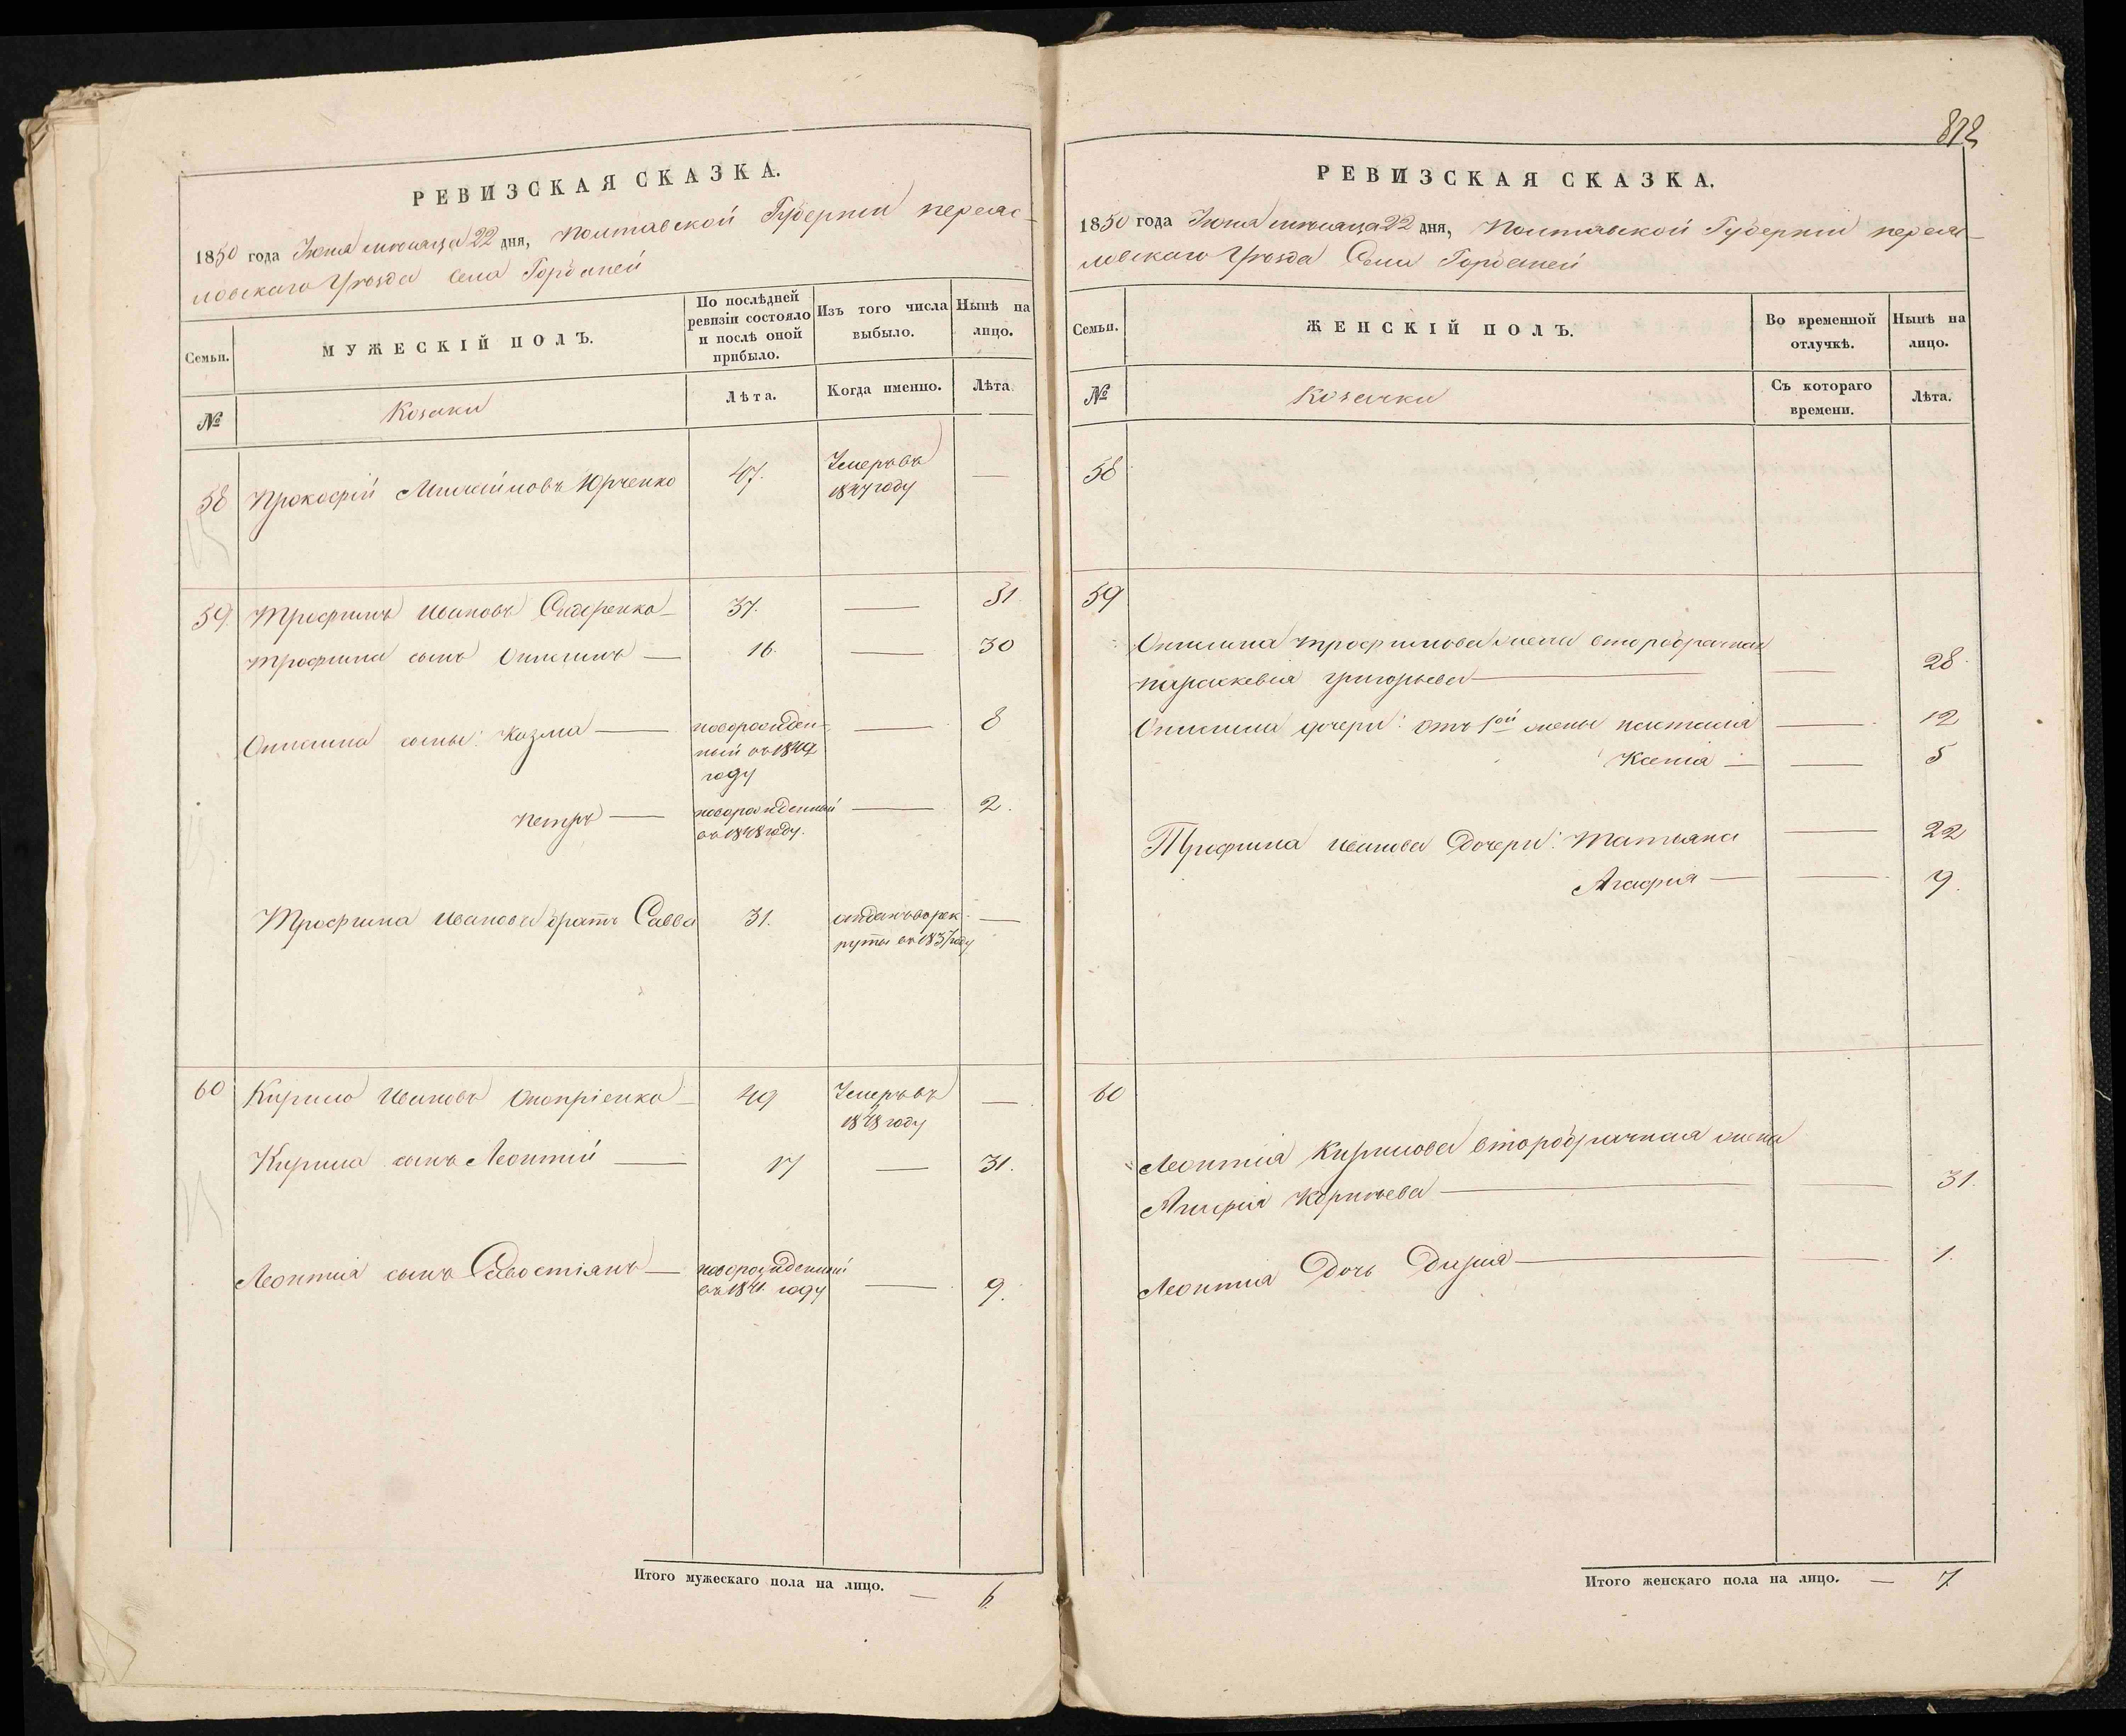 РЕВИЗСКАЯ СКАЗКА.
1850 года Июня месяца 22 дня, Полтавской Губернии переяс-
ловского Уезда Села Горбаней
Семьи.
МУЖЕСКІЙ ПОЛЪ.
По послѣдней ревизіи состояло и послѣ оной прибыло.
Изъ того числа выбыло.
Нынѣ на лицо.
№
Козаки
Лѣта.
Когда именно.
Лѣта
58 Прокофій Юрченко 47. Умеръ въ —
1847 году
59. Трофимъ Ивановъ Сидоренко — 37. — 51
Трофима сынъ Онисимъ — 16. — 30
Онисима сыны: Козма — новорожден- — 8
ный въ 1842
году
Петръ — новорожденный — 2.
въ 1848 году.
Трофима Иванова братъ Савва 31. отданъ в рек- —
руты въ 1837 году
60 Кирило Ивановъ Оноприенко — 49 Умеръ въ —
1848 году
Кирила сынъ Леонтій — 17 — 31.
Леонтія сынъ Савостіянъ — новорожденный — 9.
въ 1841 году
Итого мужескаго пола на лицо. — 6.
812
РЕВИЗСКАЯ СКАЗКА.
1850 года Июня месяца 22 дня, Полтавской Губернии переяс-
ловского Уезда Села Горбаней
Семьи.
ЖЕНСКІЙ ПОЛЪ.
Во временной отлучкѣ.
Нынѣ на лицо.
№
Козачки
Съ котораго времени.
Лѣта.
58
59
Онисима Трофимова жена второбрачная
Параскевія Григорьева — — 28.
Онисима дочери: отъ 1ой жены Настасія — 12
Ксенія — — 5
Трофима Иванова Дочери: Татьяна — 22
Агафия — — 9.
60
Леонтія Кирилова второбрачная жена
Агафія — — 31.
Леонтія Дочь Дарія — — 1.
Итого женскаго пола на лицо. — 7.